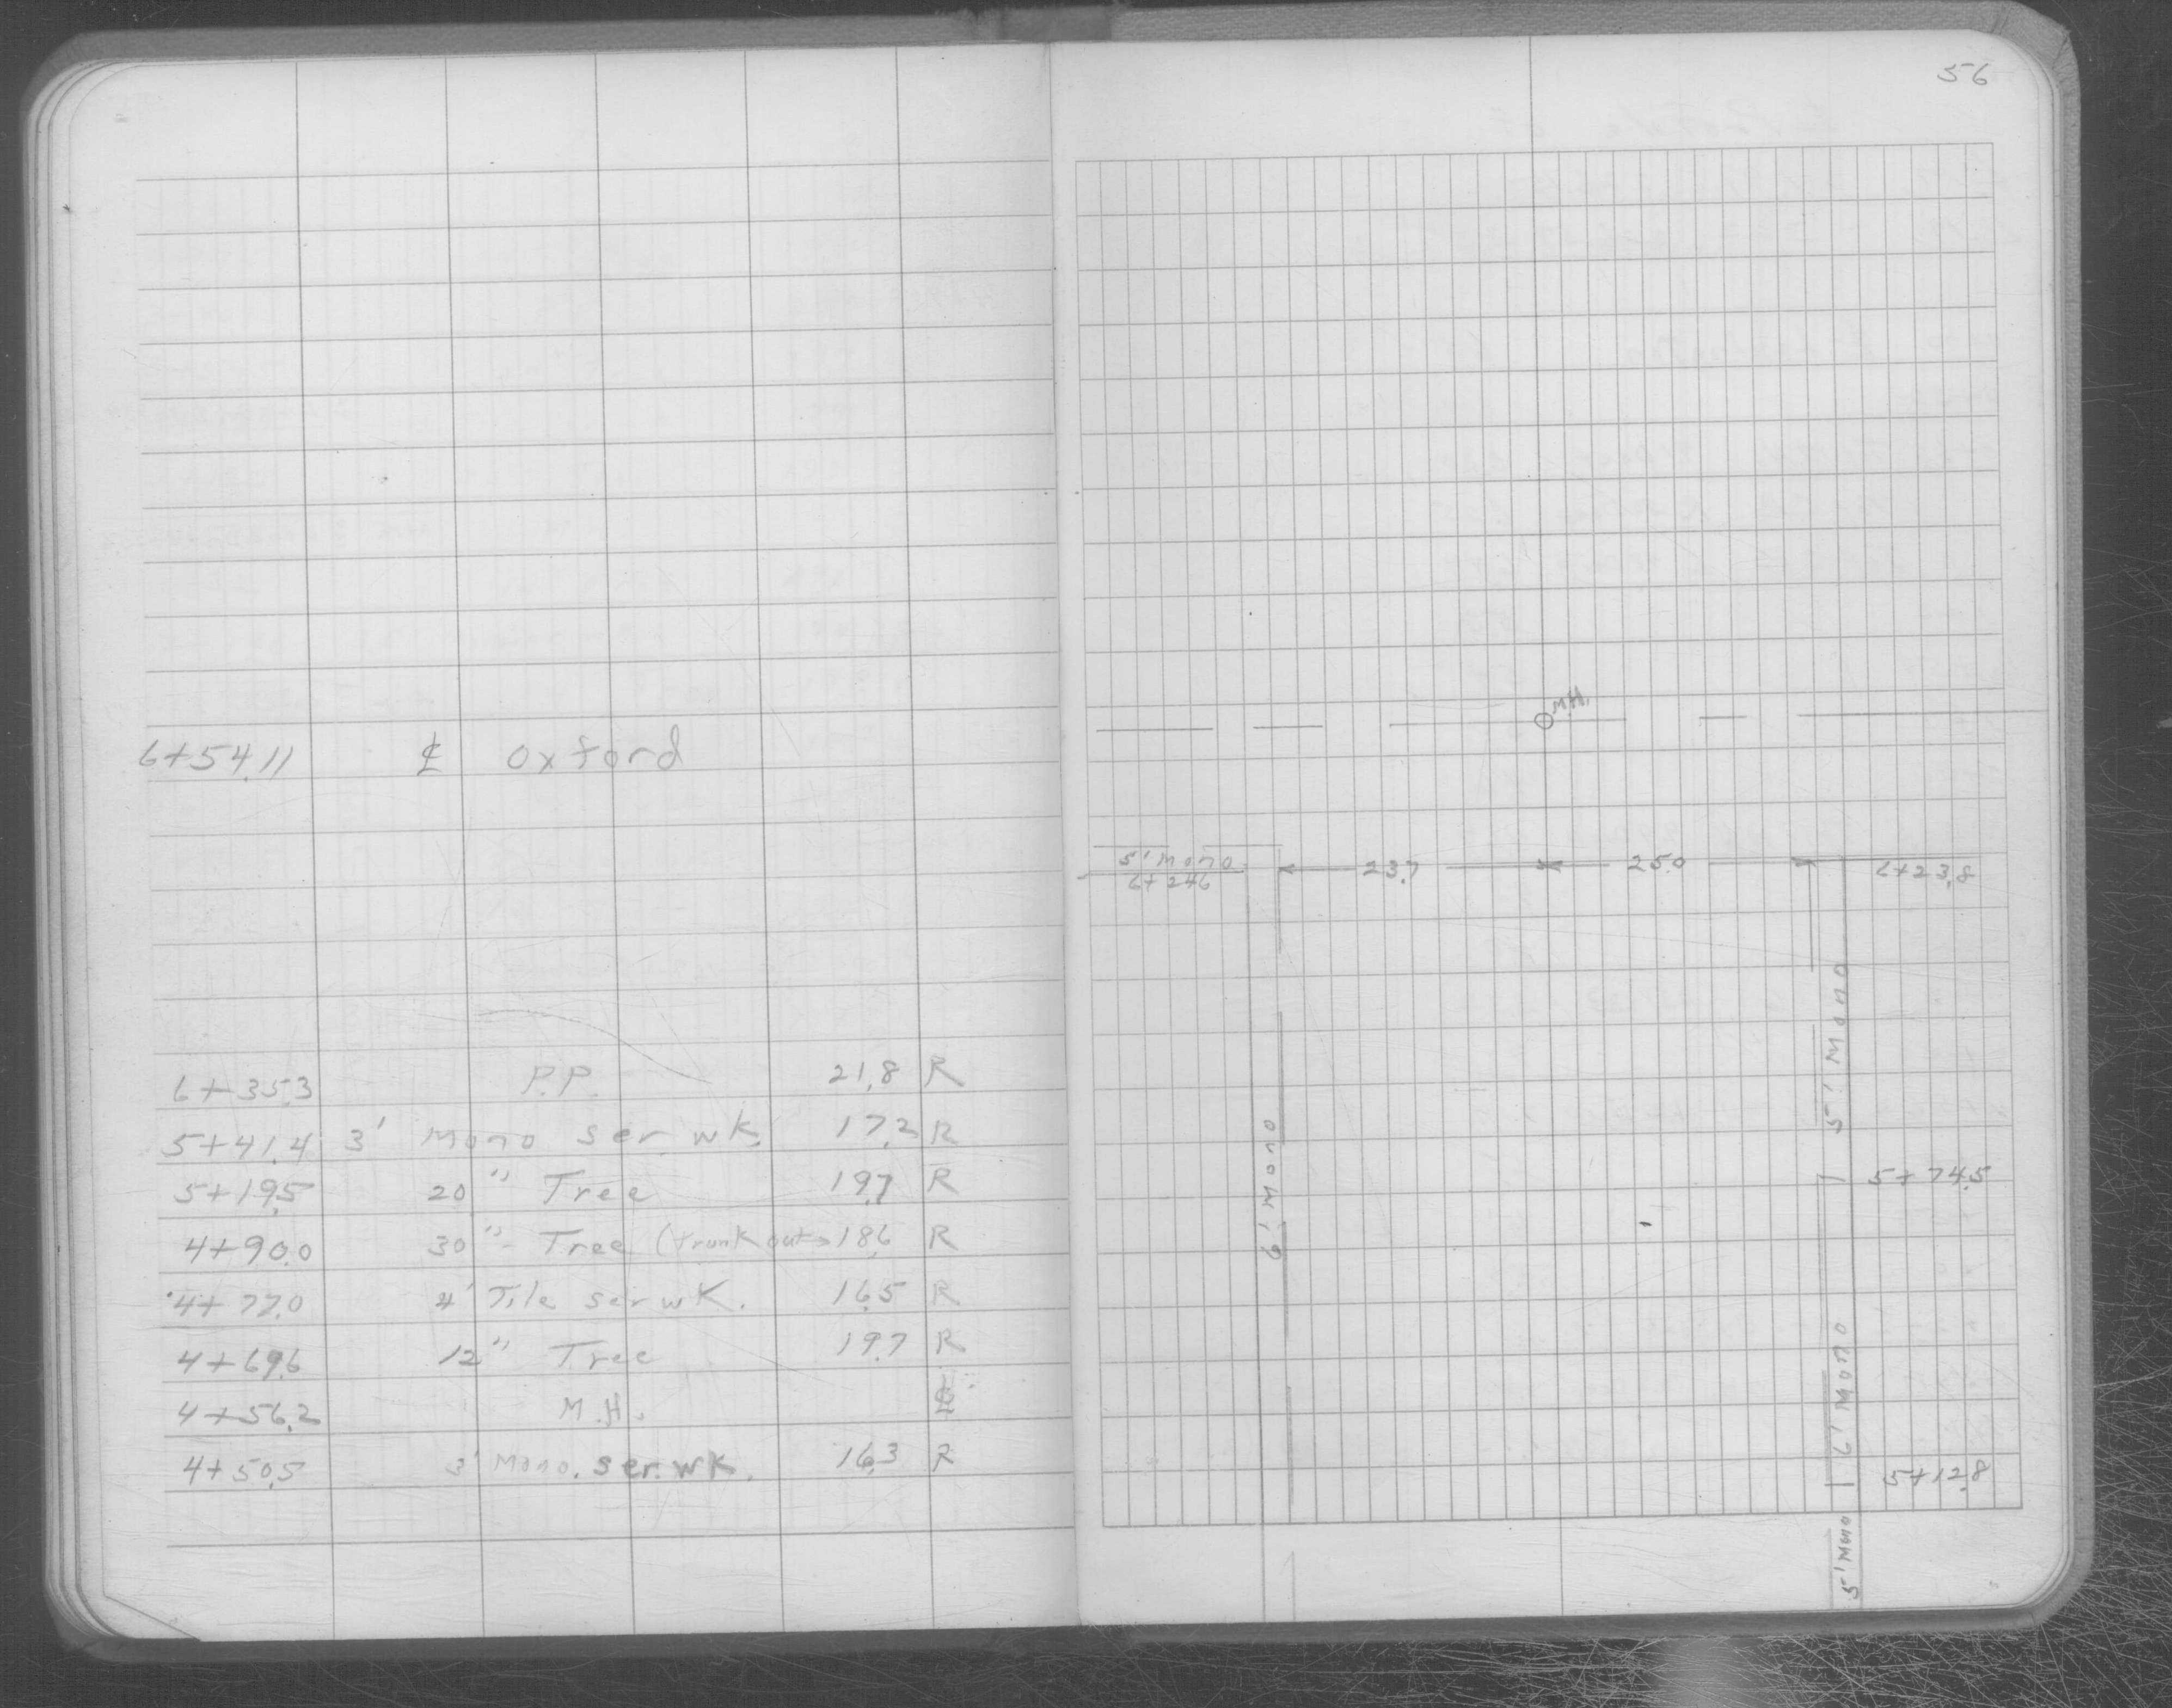 56
6+54.11 ₵ Oxford
6+35.3 P.P. 21.8 R
5+41.4 3' Mono ser. wk. 17.2 R
5+19.5 20" Tree 19.7 R
4+90.0 30" - Tree (trunk out→ 18.6 R
4+77.0 4' Tile ser wk. 16.5 R
4+69.6 12" Tree 19.7 R
4+56.2 M.H. ₵
4+50.5 3' Mono. ser. wk. 16.3 R
M.H.
5' Mono
6+24.6
23.7
25.0
6+23.8
5' Mono
6' Mono
5+74.5
6' Mono
5+12.8
5' Mono